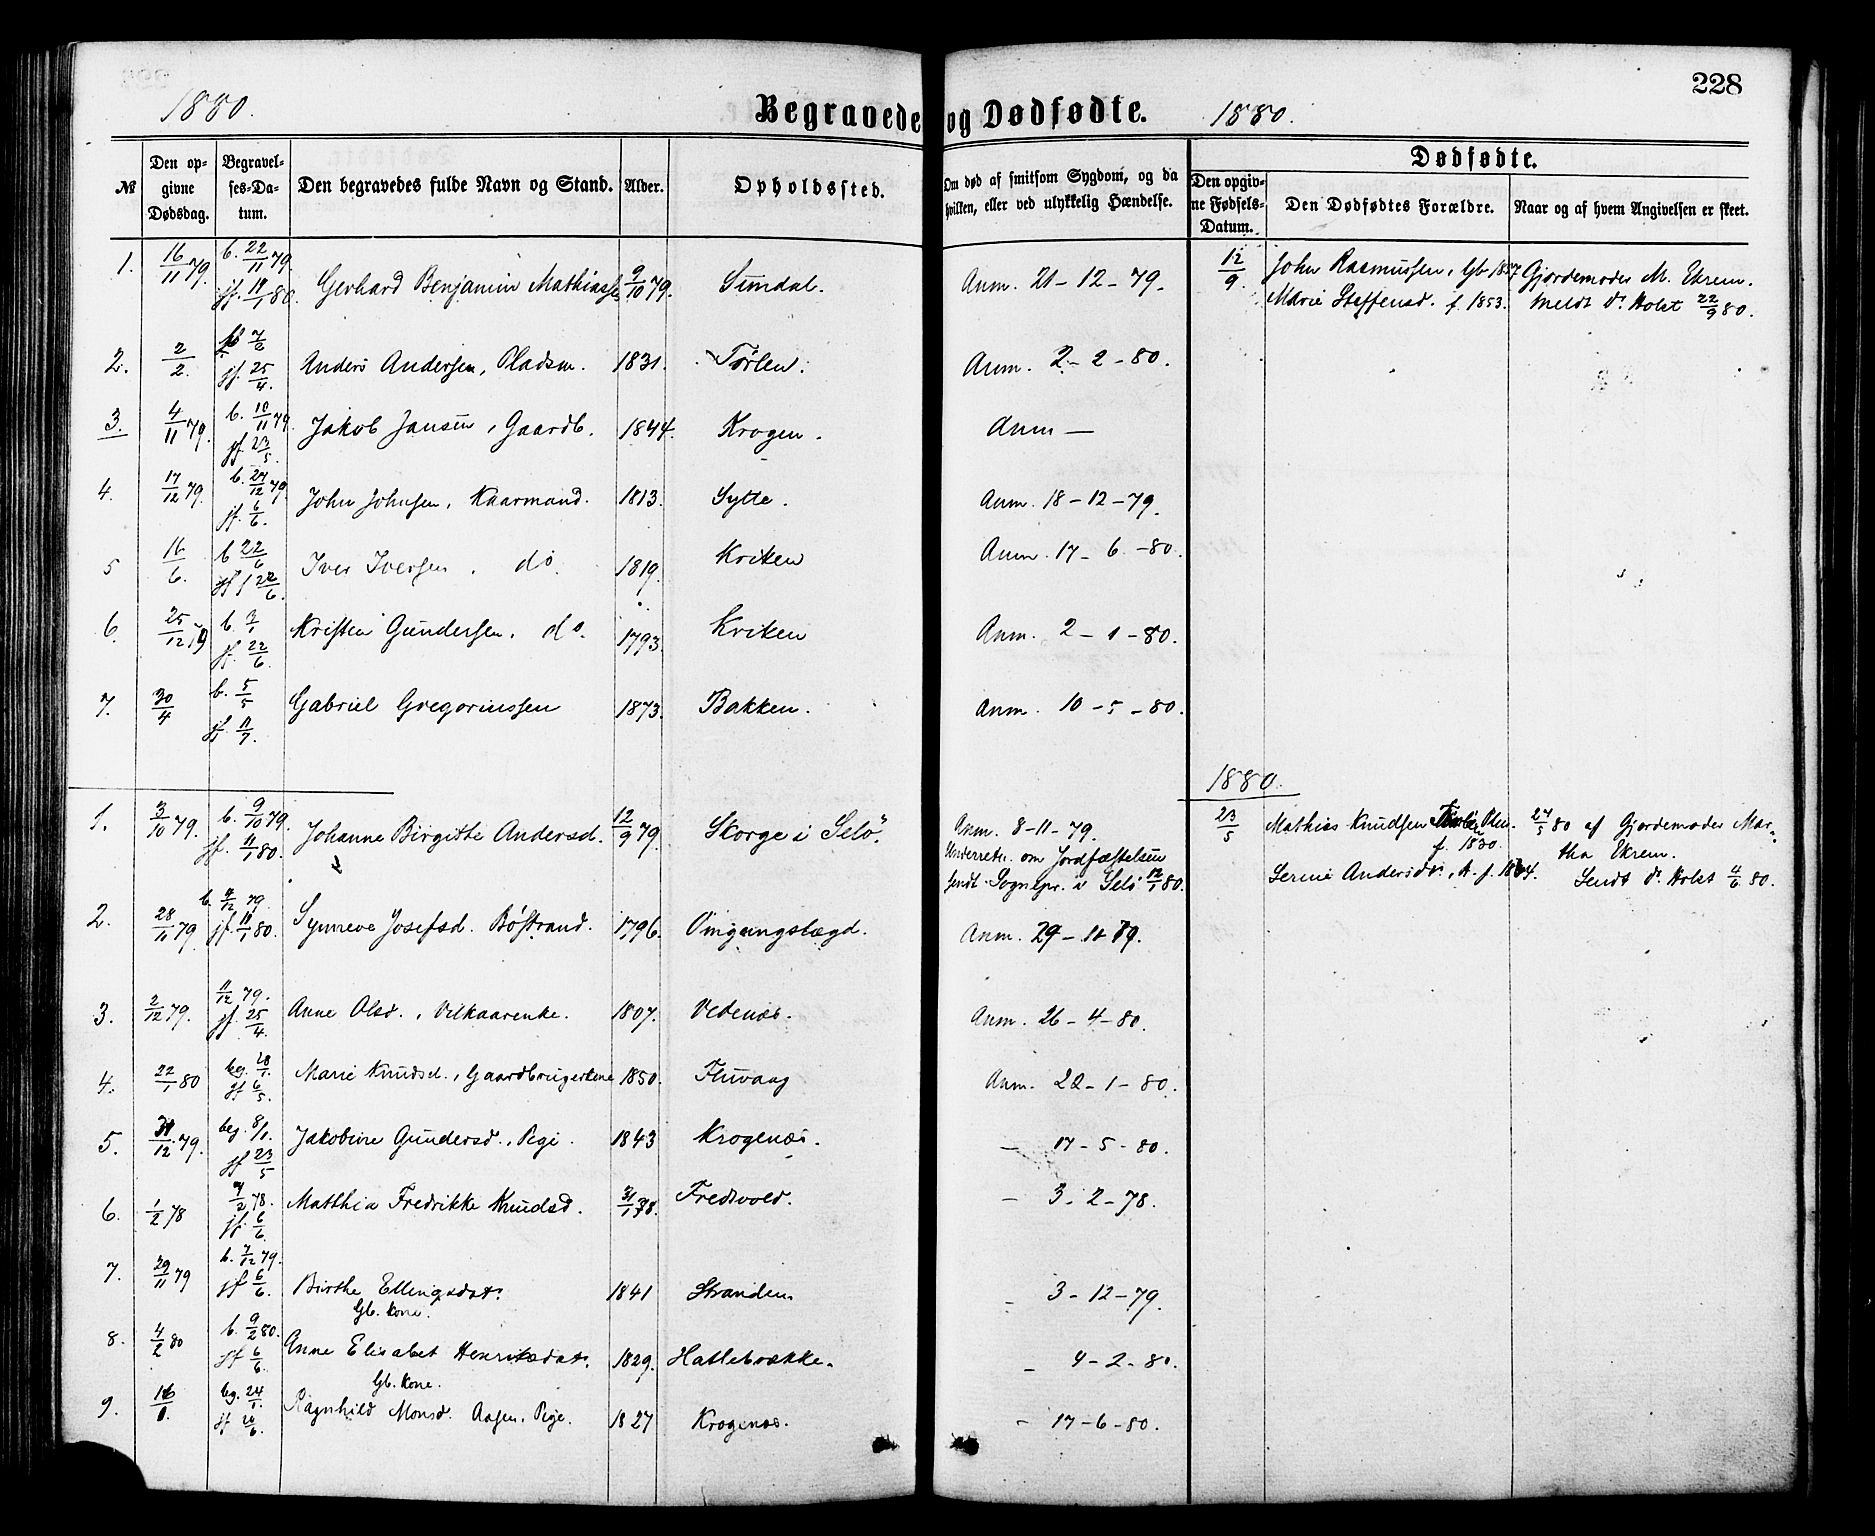 228
1880. Begravede og Dødfødte. 1880.
Dødfødte.
№ Den opgivne Dødsdag. Begravelses-Datum. Den begravedes fulde Navn og Stand. Alder. Opholdssted. Om død af smitsom Sygdom, og da hvilken, eller ved ulykkelig Hændelse. Den opgivne Fødsels-Datum. Den Dødfødtes Forældre. Naar og af hvem Angivelsen er skeet.
1. 16/11 79. b. 22/11 79. jf. 18/1 80. Gerhard Benjamin Mathiass. 9/10 79. Simdal. Anm. 21-12-79. 12/9. John Rasmussen, Gb 1857 Gjordemoder M. Ekrem.
Marie Steffensd. f. 1853. Meldt Dr Holst 22/9 80.
2. 2/2. 7/2 jf. 25/4. Anders Andersen, Pladsm. 1831. Tørlen. Anm. 2-2-80.
3. 4/11 79. b. 10/11 79. jf 23/5. Jakob Jansen, Gaardb. 1844. Krogen. Anm —
4. 17/12 79. b. 27/12 79. jf. 6/6. John Johnsen, Kaarmand. 1813. Sytte. Anm. 18-12-79.
5 16/6. b 22/6 jf 22/6. Iver Iversen. do. 1819. Kriken Anm. 17-6-80.
6. 25/12 79 b. 3/1 jf. 22/6. Kristen Gundersen. do. 1793. Kriken Anm. 2-1-80.
7. 30/4 b. 5/5 jf. 11/7. Gabriel Gregoriussen 1873. Bakken. Anm. 10-5-80.
1880.
1. 3/10 79. b. 9/10 79. jf. 11/1 80. Johanne Birgitte Andersd. 12/9 79. Skorge i Selö. Anm. 8-11-79. 23/5 Mathias Knudsen Olsen. 27/5 80 af Gjordemoder Mar-
f. 1830. tha Ekrem.
Underretn. om Jordfæstelsen
sendt Sognepr. i Selö 12/1 80. Serine Andersdtr, f. 1834. Sendt Dr Holst 4/6 80.
2. 28/11 79 b. 4/12 79. jf. 11/1 80. Synneve Josefsd. Böstrand. 1796. Omgangslægd. Anm. 29-11-79.
3. 2/12 79. 11/12 79. jf. 25/4. Anne Olsd., Vilkaarenke. 1807. Vedenæs. Anm. 26-4-80.
4. 22/1 80 beg. 28/1. jf 6/5. Marie Knudsd., Gaardbrugerkone 1850. Fluvaag Anm. 22-1-80.
5. 31/12 79. beg. 8/1. jf 23/5 Jakobine Gundersd., Pige. 1843 Krogenæs. — 17-5-80.
6. 1/2 78 7/2 78. jf. 6/6. Matthia Fredrikke Knudsd. 31/1 78. Fredsvold. — 3-2-78.
7. 29/11 79 b. 7/12 79. jf 6/6. Birthe Ellingsdat. 1841 Stranden — 3-12-79.
Gb. Kone.
8. 4/2 80 b. 9/2 80. jf 6/6. Anne Elisabet Henriksdat. 1829. Hatlebrække. — 4-2-80.
Gb. Kone.
9. 16/1. beg. 24/1. jf 20/6. Ragnhild Monsd. Aasen, Pige. 1827 Krogenæs. — 17-6-80.